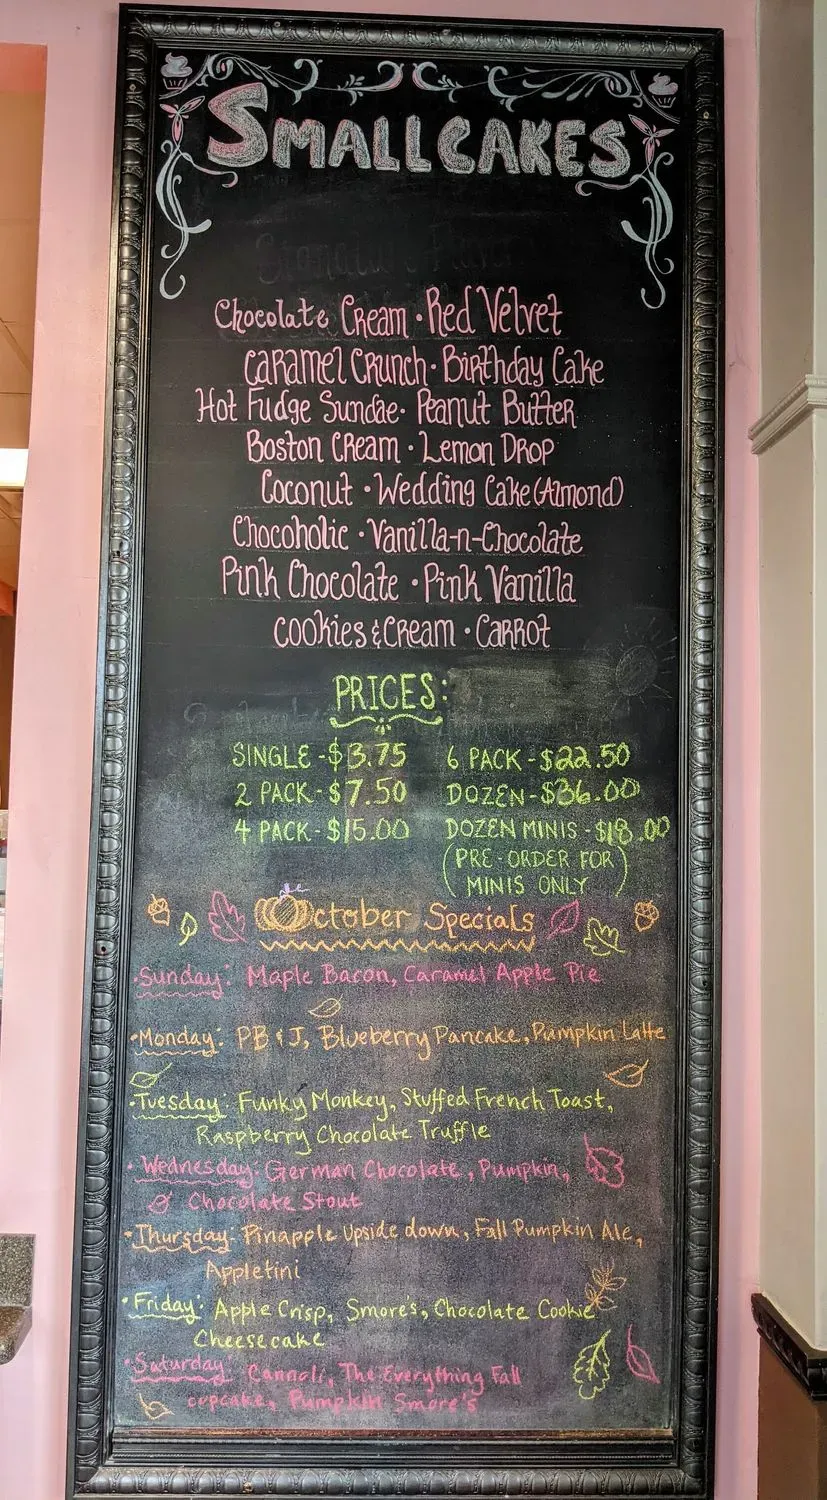 SMALLCAKES
Chocolate Cream · Red Velvet
Caramel Crunch · Birthday Cake
Hot Fudge Sundae · Peanut Butter
Boston Cream · Lemon Drop
Coconut · Wedding Cake (Almond)
Chocoholic · Vanilla-n-Chocolate
Pink Chocolate · Pink Vanilla
Cookies & Cream · Carrot
PRICES:
SINGLE - $3.75 6 PACK - $22.50
2 PACK - $7.50 DOZEN - $36.00
4 PACK - $15.00 DOZEN MINIS - $18.00
(PRE-ORDER FOR
MINIS ONLY)
October Specials
· Sunday: Maple Bacon, Caramel Apple Pie
· Monday: PB & J, Blueberry Pancake, Pumpkin Latte
· Tuesday: Funky Monkey, Stuffed French Toast,
Raspberry Chocolate Truffle
· Wednesday: German Chocolate, Pumpkin,
Chocolate Stout
· Thursday: Pinapple Upside down, Fall Pumpkin Ale,
Appletini
· Friday: Apple Crisp, Smore's, Chocolate Cookie
Cheesecake
· Saturday: Cannoli, The Everything Fall
cupcake, Pumpkin Smore's